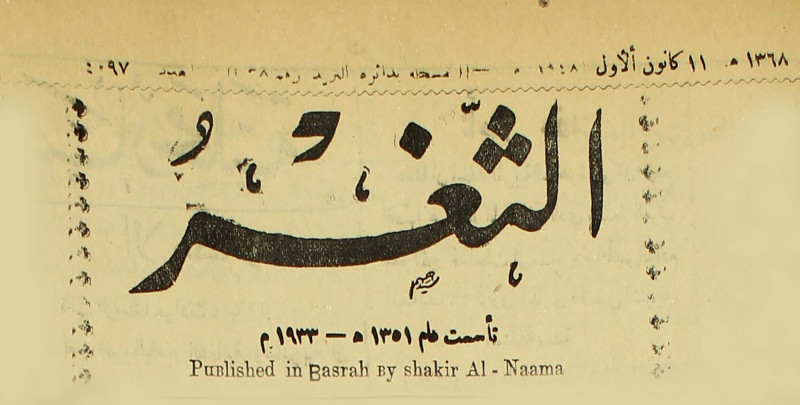 ١٣٦٨ هـ ١١ كانون الأول ١٩٤٨ مسجلة بدائرة البريد العدد ٤٠٩٧
الثغر
تأسست عام ١٣٥١ ه — ١٩٣٣ م
PuBlished in Basrah By shakir Al - Naama